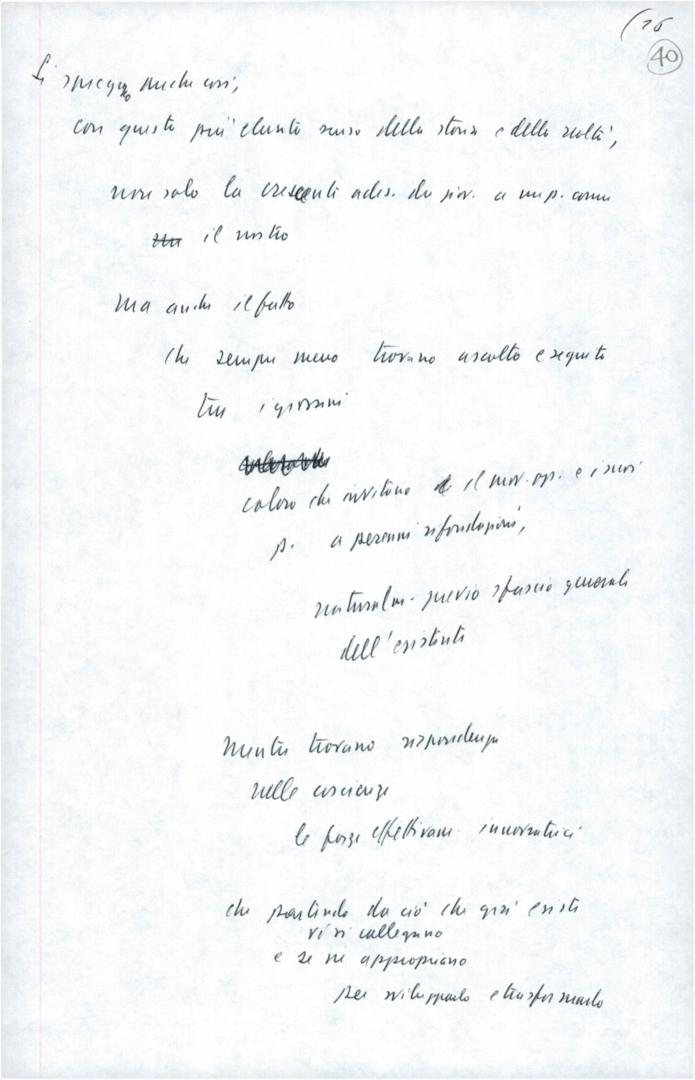 (26
40
Si spiegano anche così,
con questo più elevato senso della storia e della realtà,
non solo la crescente ades. dei giov. a un p. come
il nostro
ma anche il fatto
che sempre meno trovano ascolto e seguito
tra i giovani
coloro che invitano il mov. op. e i suoi
p. a perenni rifondazioni,
naturalm. previo sfascio generale
dell'esistente
mentre trovano rispondenza
nelle coscienze
le forze effettivam. innovatrici
che partendo da ciò che già esiste
vi si collegano
e se ne appropriano
per svilupparlo e trasformarlo